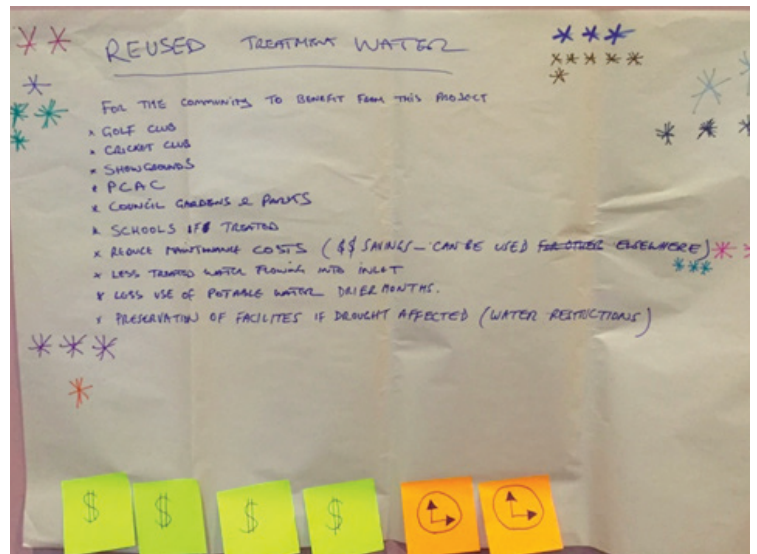 REUSED TREATMENT WATER
FOR THE COMMUNITY TO BENEFIT FROM THIS PROJECT
x GOLF CLUB
x CRICKET CLUB
x SHOWGROUNDS
x PCAC
x COUNCIL GARDENS & PARKS
x SCHOOLS IF TREATED
x REDUCE MAINTENANCE COSTS ($$ SAVINGS - CAN BE USED FOR OTHER ELSEWHERE)
x LESS TREATED WATER FLOWING INTO INLET
x LESS USE OF POTABLE WATER DRIER MONTHS.
x PRESERVATION OF FACILITES IF DROUGHT AFFECTED (WATER RESTRICTIONS)
$ $ $ $